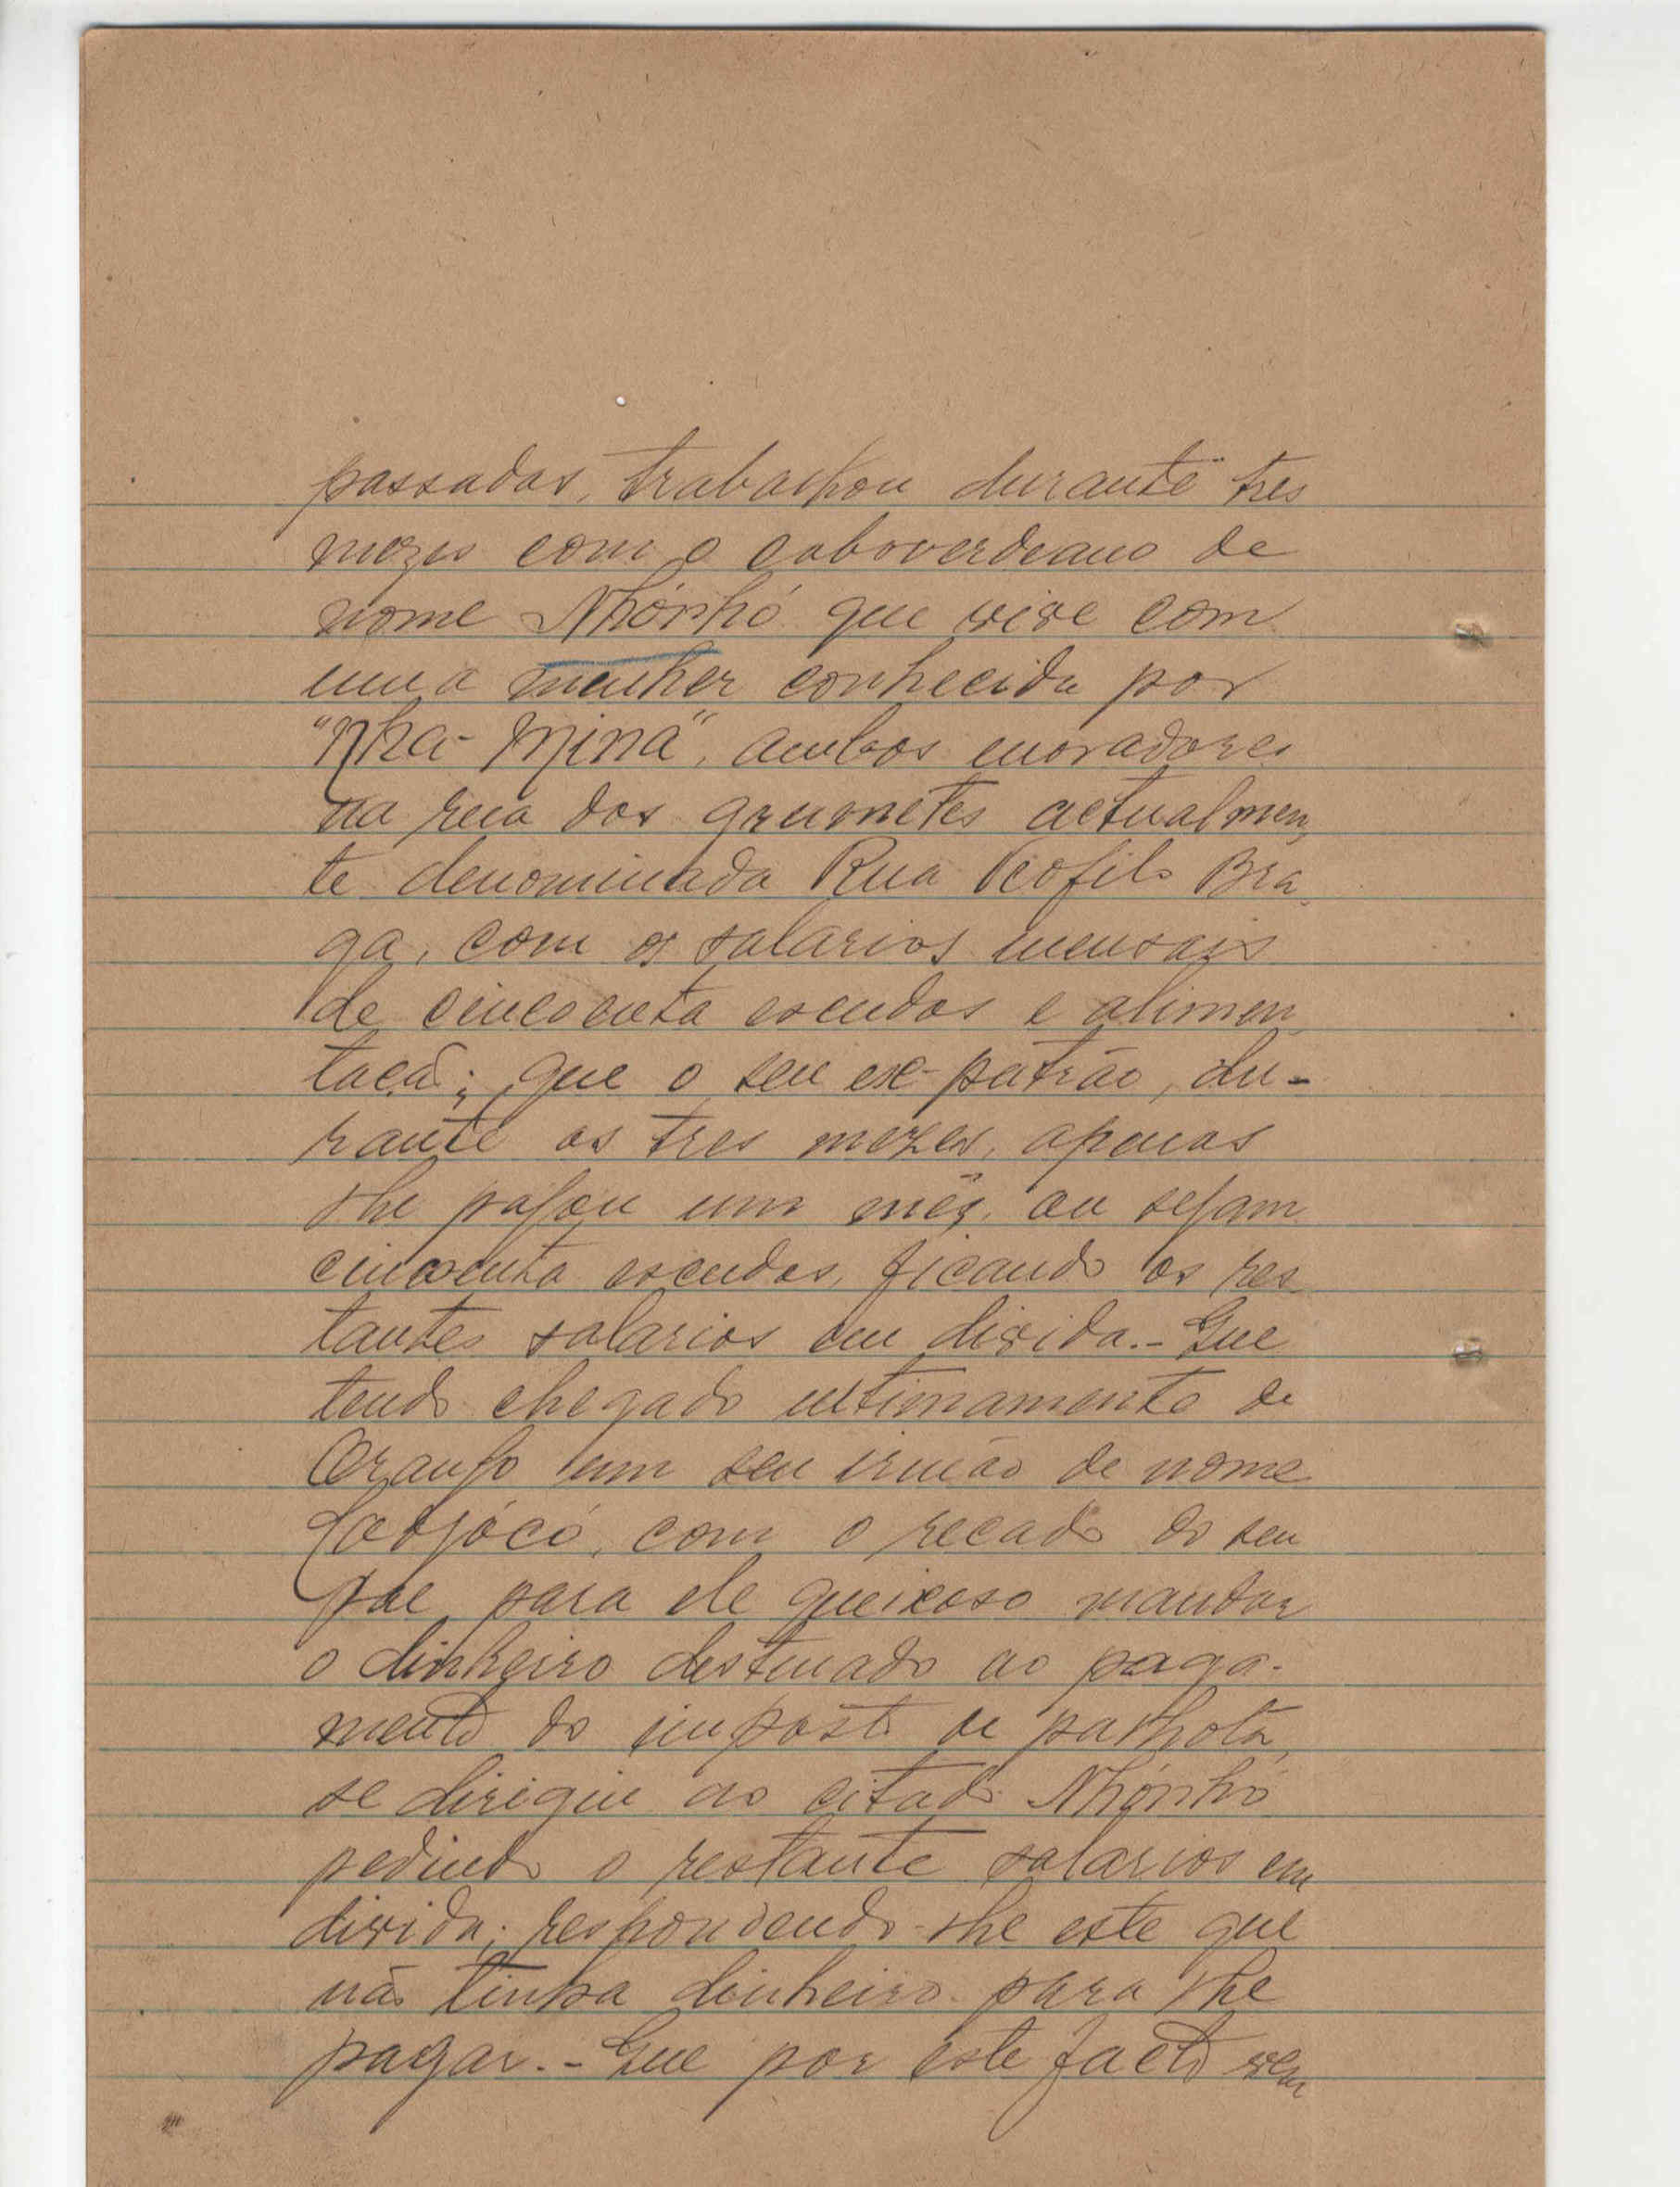 passadas, trabalhou durante tres
mezes com o caboverdeano de
nome Nhónhó que vive com
uma mulher conhecida por
"Nha-Mina", ambos moradores
na rua dos grumetes actualmen
te denominada Rua Teofilo Bra
ga, com os salarios mensais
de cincoenta escudos e alimen
tacão; que o seu ex-patrão, du-
rante os tres mezes, apenas
lhe pagou um mês, ou sejam
cincoenta escudos, ficando os res
tantes salarios em divida.- Que
tendo chegado ultimamente de
um seu irmão de nome
com o recado do seu
pae para ele queixoso mandar
o dinheiro destinado ao paga-
mento do imposto de palhota,
se dirigiu ao citado Nhónhó
pedindo o restante salarios em
divida; respondendo-lhe este que
não tinha dinheiro para lhe
pagar.- Que por este facto vem